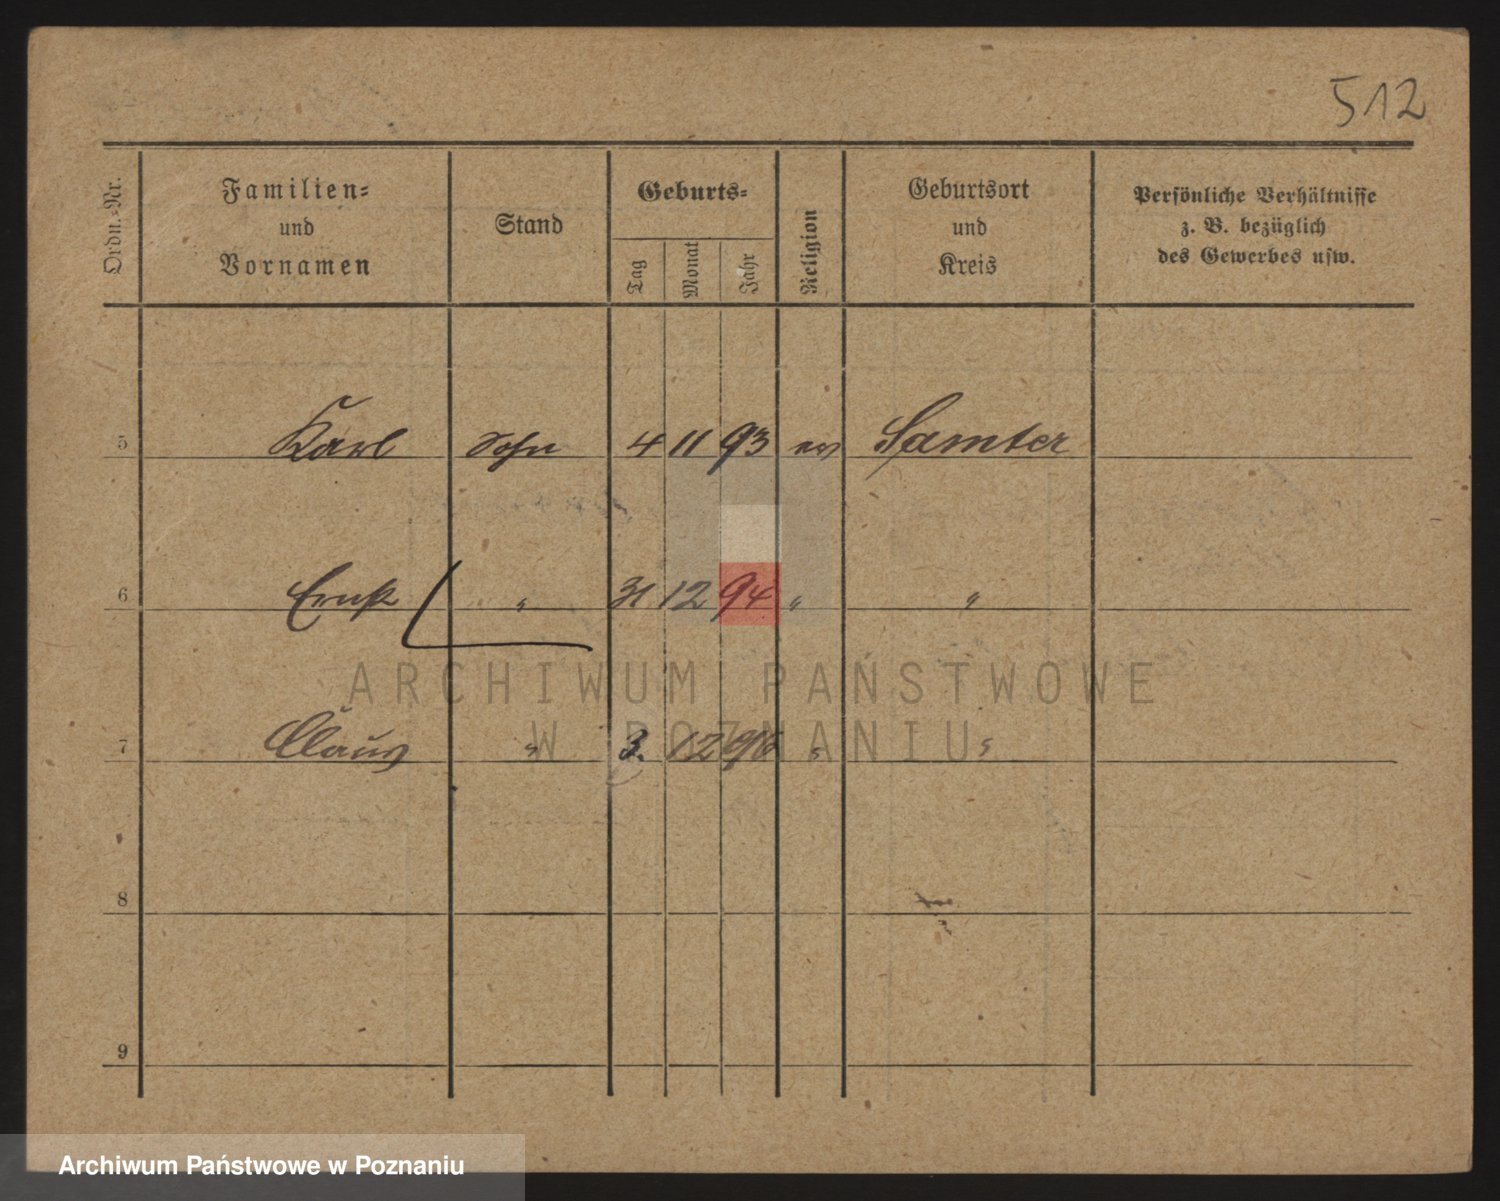 512
Ordn.-Nr.
Familien-
und
Vornamen
Stand
Geburts-
Tag
Monat
Jahr
Religion
Geburtsort
und
Kreis
Persönliche Verhältnisse
z. B. bezüglich
des Gewerbes usw.
5 Karl Sohn 4 11 93 ev Samter
6 Ernst " 31 12 94 " "
ARCHIWUM PAŃSTWOWE
W POZNANIU
7 Claus " 3. 12 " "
8
9
Archiwum Państwowe w Poznaniu